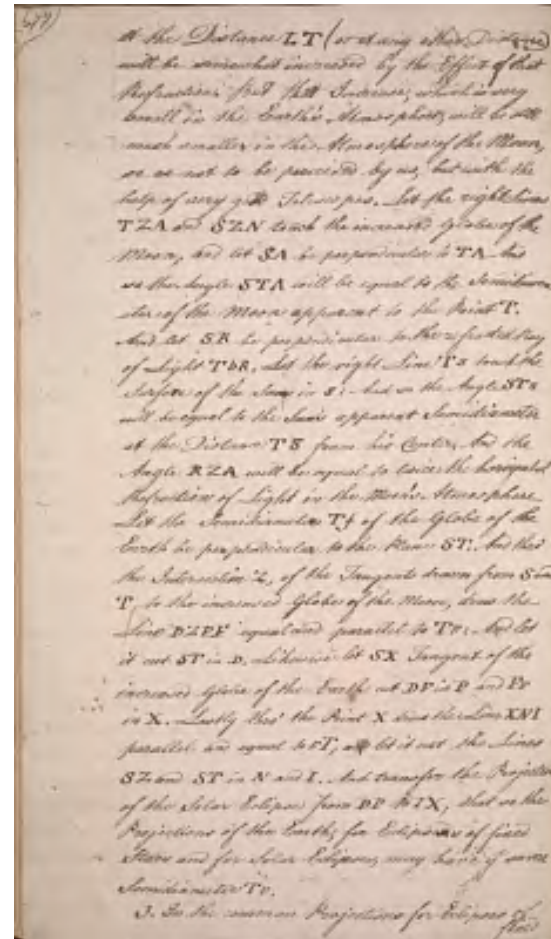 (477)
at the Distance LT (or at any other Distance)
will be somewhat increased by the Effect of that
Refraction; but that Increase, which is very
small in the Earth's Atmosphere, will be still
much smaller in the Atmosphere of the Moon,
so as not to be perceived by us, but with the
help of very good Telescopes. Let the right Lines
TZA and SZN touch the increased Globe of the
Moon, and let SA be perpendicular to TA. And
so the Angle STA will be equal to the Semidiam
eter of the Moon apparent to the Point T.
And let SR be perpendicular to the refracted Ray
of Light TbR. Let the right Line Ts touch the
Surface of the Sun in s: And so the Angle STs
will be equal to the Sun's apparent Semidiameter
at the Distance TS from his Center, And the
Angle RZA will be equal to twice the horizontal
Refraction of Light in the Moon's Atmosphere.
Let the Semidiameter T of the Globe of the
Earth be perpendicular to the Plane ST. And thro'
the Intersection Z, of the Tangents drawn from S and
T, to the increased Globe of the Moon, draw the
Line DZPF equal and parallel to : And let
it cut ST in D. Likewise let SX Tangent of the
increased Globe of the Earth cut DF in P and
in X. Lastly thro' the Point X draw the Line XNI
parallel and equal to , let it cut the Lines
SZ and ST in N and I. And transfer the Projection
of the Solar Eclipse from DP to IX, that so the
Projections of the Earth, for Eclipses of fixed
Stars and for Solar Eclipses, may have same
Semidiameter
3. In the common Projections for Eclipses of
fixed